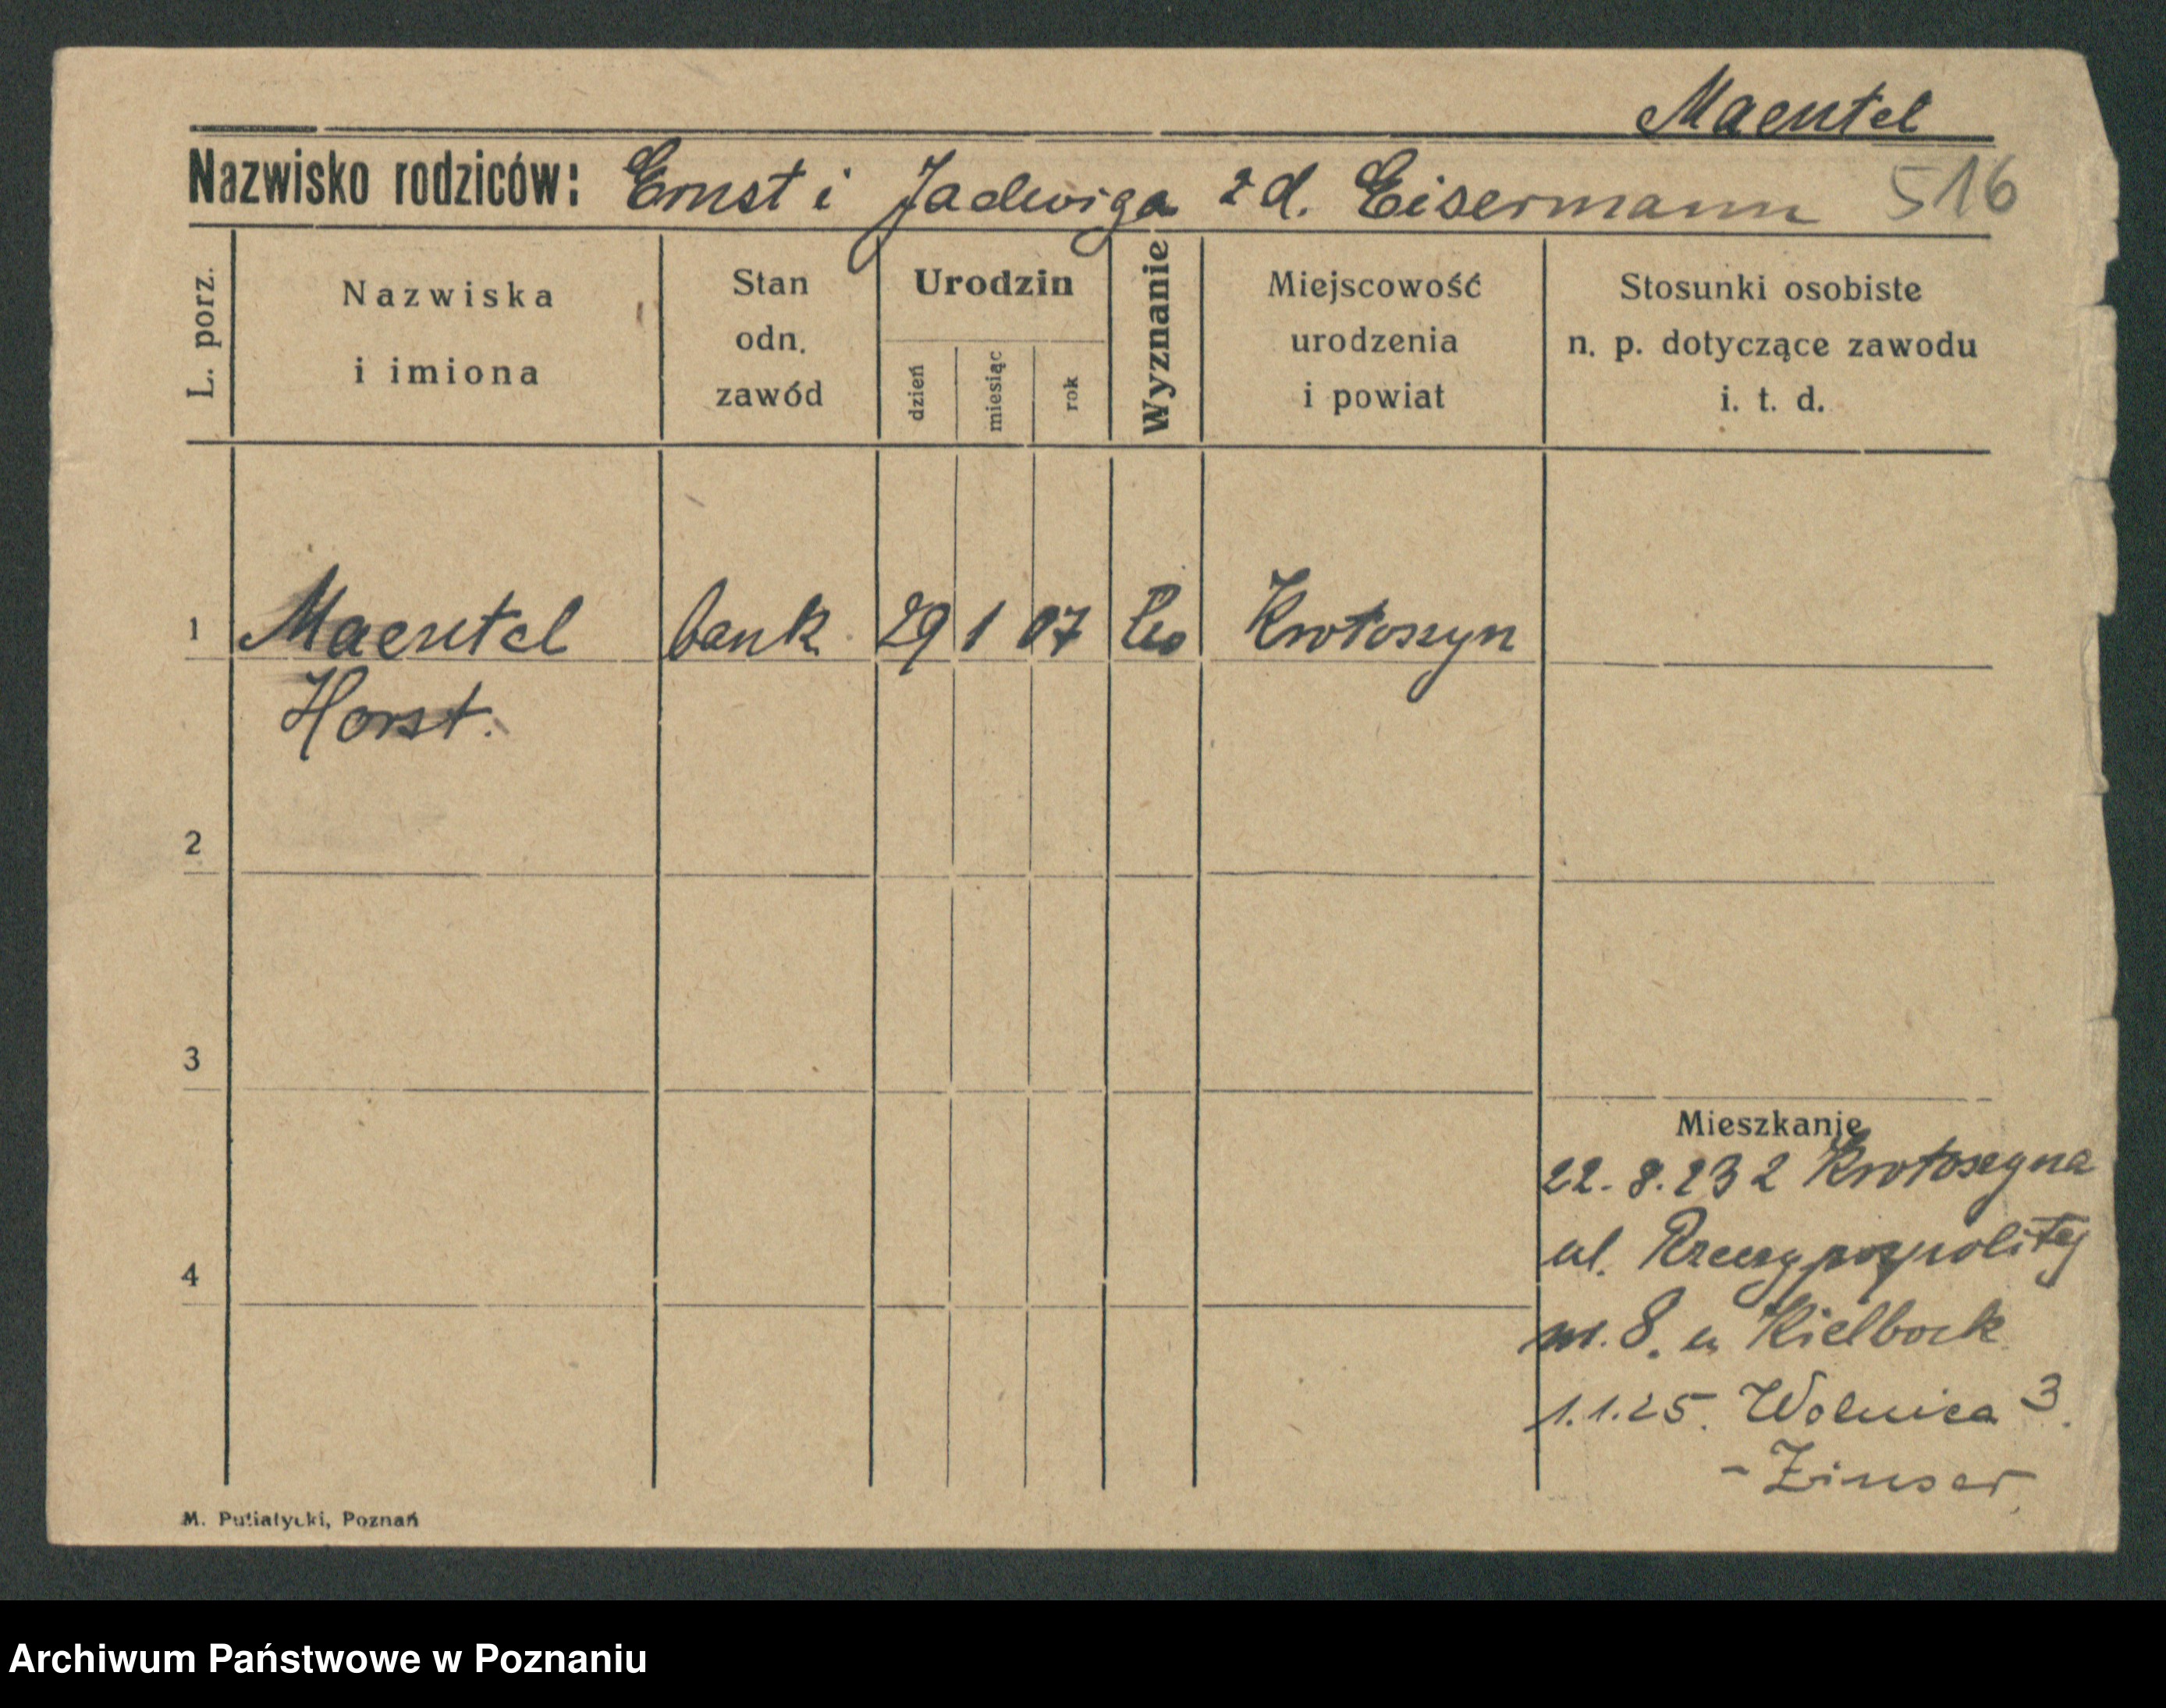 Maentel
Nazwisko rodziców: Ernst i Jadwiga z d. Eisermann 516
L. porz.
Nazwiska
i imiona
Stan
odn.
zawód
Urodzin
dzień
miesiąc
rok
Wyznanie
Miejscowość
urodzenia
i powiat
Stosunki osobiste
n. p. dotyczące zawodu
i. t. d.
1 Maentel bank. 29 1 07 Krotoszyn
Horst.
2
3
4
Mieszkanie
22.8.23 z Krotoszyna
ul. Rzeczypospolitej
nr. 8. u Kielbock
1.1.25. Wolnica 3.
- Zinser.
M. Putiatycki, Poznań
Archiwum Państwowe w Poznaniu